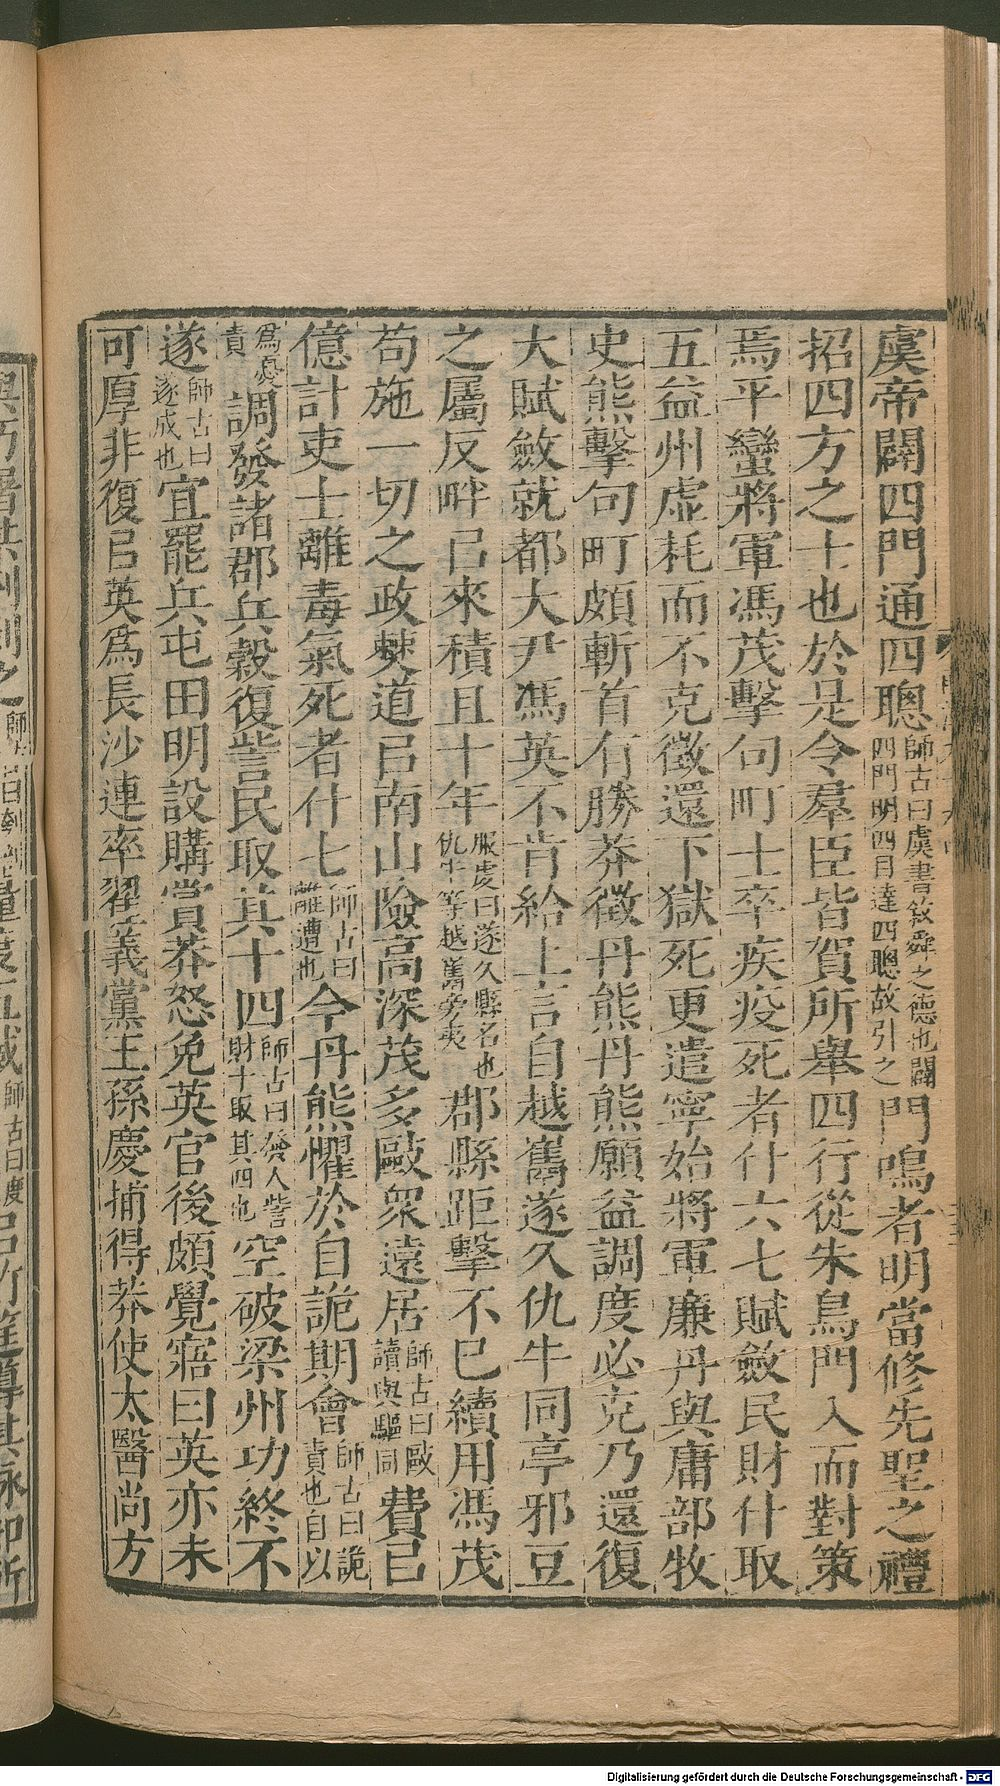 虞帝闢四門通四聰師古曰虞書敘舜之德也闢四門明四目達四聰故引之門鳴者明當修先聖之禮
招四方之士也於是令羣臣皆賀所舉四行從朱鳥門入而對策
焉平蠻將軍馮茂擊句町士卒疾疫死者什六七賦斂民財什取
五益州虛耗而不克徵還下獄死更遣寧始將軍廉丹與庸部牧
史熊擊句町頗斬首有勝莽徵丹熊丹熊願益調度必克乃還復
大賦斂就都大尹馮英不肯給上言自越巂遂久仇牛同亭邪豆
之屬反畔㠯來積且十年服虔曰遂久縣名也仇牛等越巂旁夷郡縣距擊不已續用馮茂
苟施一切之政僰道㠯南山險高深茂多敺眾遠居師古曰敺讀與驅同費㠯
億計吏士離毒氣死者什七師古曰離遭也今丹熊懼於自詭期會師古曰詭責也自以
為憂責調發諸郡兵穀復訾民取其十四師古曰發人訾財十取其四也空破梁州功終不
遂師古曰遂成也宜罷兵屯田明設購賞莽怒免英官後頗覺寤曰英亦未
可厚非復㠯英爲長沙連率翟義黨王孫慶捕得莽使太醫尚方
Digitalisierung gefördert durch die Deutsche Forschungsgemeinschaft - DFG